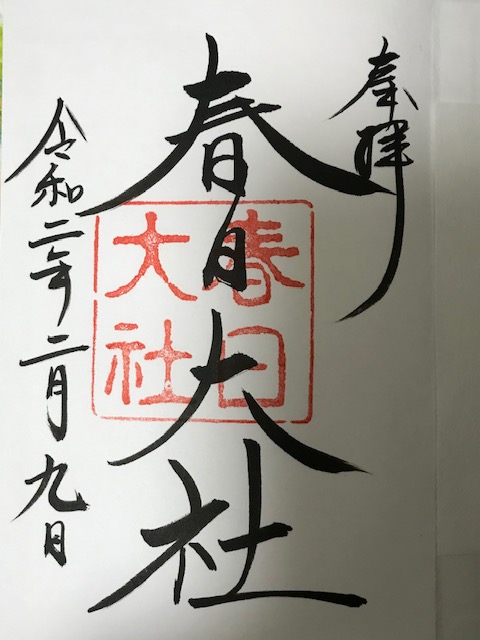 奉拝
春日大社
春日大社
令和二年二月九日